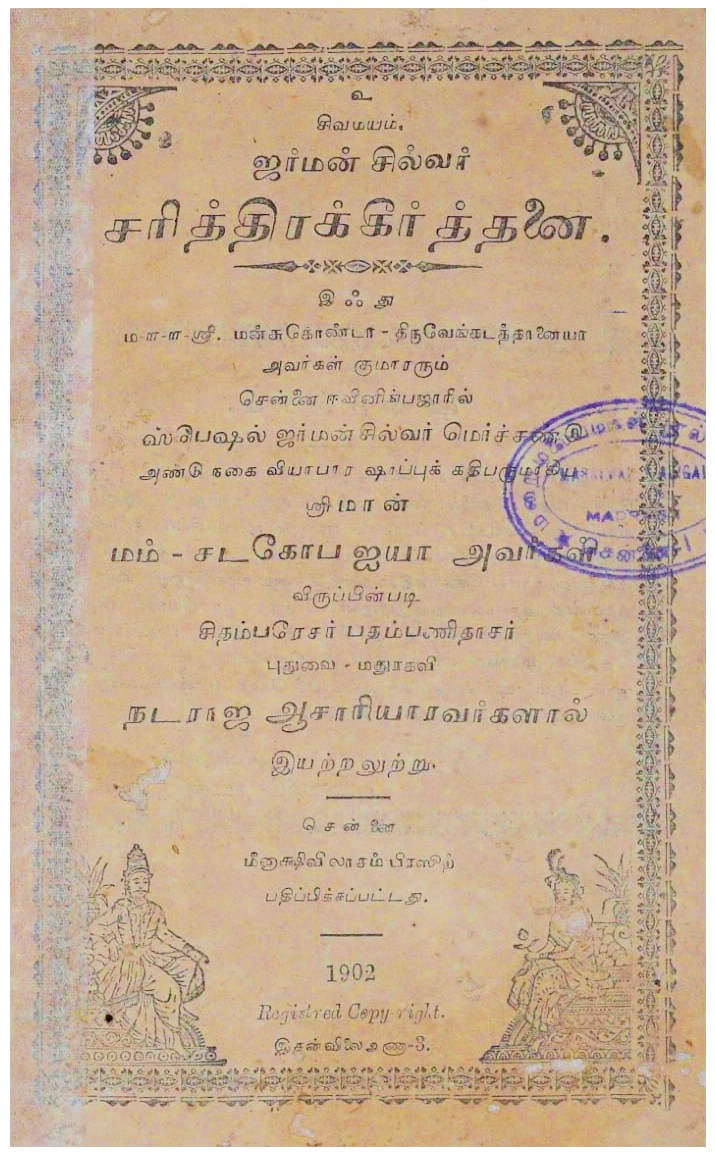 உ
சிவமயம்.
ஜர்மன் சில்வர்
சரித்திரக்கீர்த்தனை.
இஃது
ம-ள-ள-ஸ்ரீ. மன்சுகொண்டா - திருவேங்கடத்தானையா
அவர்கள் குமாரரும்
சென்னை ஈவினிங்பஜாரில்
ஸ்பெஷல் ஜர்மன்சில்வர் மெர்ச்சண்டு
அண்டு நகை வியாபார ஷாப்புக் கதிபருமாகிய
ஸ்ரீமான்
மம் - சடகோப ஐயா அவர்களின்
விருப்பின்படி
சிதம்பரேசர் பதம்பணிதாசர்
புதுவை - மதுரகவி
நடராஜ ஆசாரியாரவர்களால்
இயற்றலுற்று.
சென்னை
மீனாக்ஷிவிலாசம் பிரஸிற்
பதிப்பிக்சப்பட்டது.
1902
Registred Copy-right.
இதன்விலைஅணா-3.